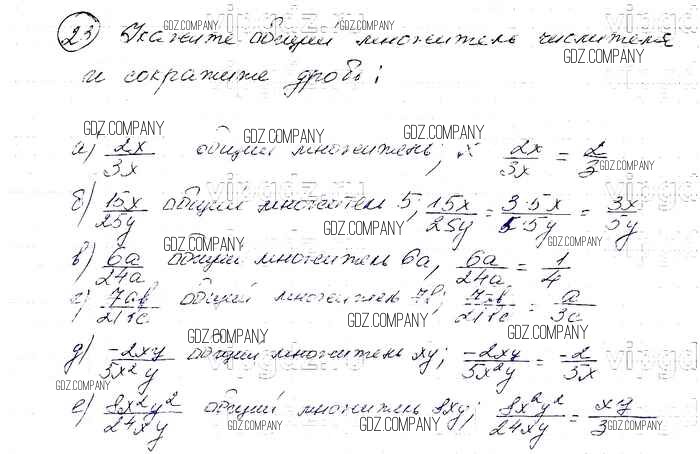 23 Укажите общий множитель числителя
и сократите дробь:
а) 2x/3x общий множитель; x 2x/3x = 2/3
б) 15x/25y общий множитель 5, 15x/25y = 3·5x/5·5y = 3x/5y
в) 6a/24a общий множитель 6a, 6a/24a = 1/4
г) 7ab/21bc общий множитель 7b; 7ab/21bc = a/3c
д) -2xy/5x²y общий множитель xy; -2xy/5x²y = -2/5x
е) 8x²y²/24xy общий множитель 8xy; 8x²y²/24xy = xy/3